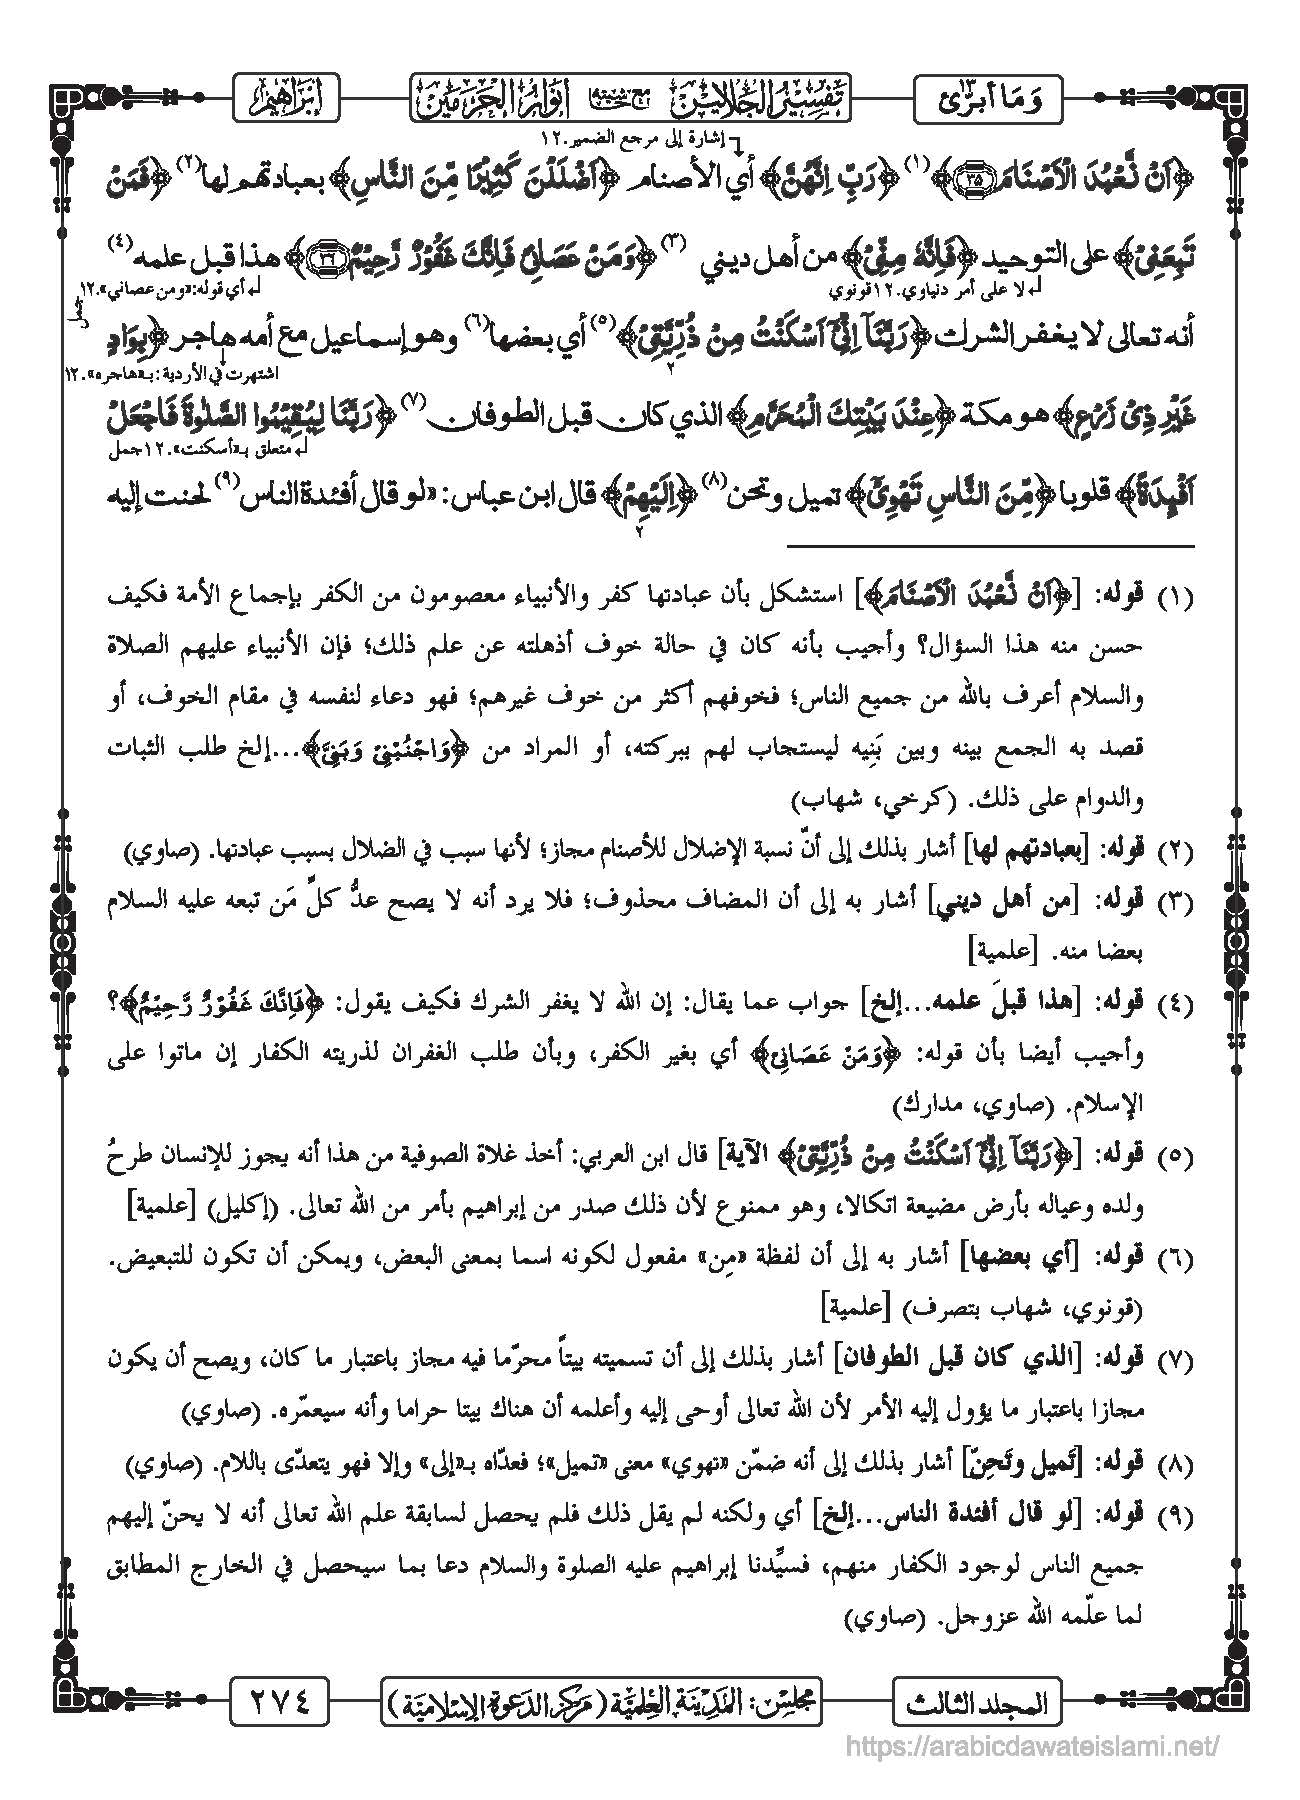 وَمَا أبرّئ ١٣
تفسير الجلالين مع حاشيته أنوار الحرمين
إبراهيم
إشارة إلى مرجع الضمير.١٢
﴿اَنْ نَّعْبُدَ الْاَصْنَامَ ﴿۳۵﴾﴾(١) ﴿رَبِّ اِنَّهُنَّ﴾ أي الأصنام ﴿اَضْلَلْنَ كَثِيْرًا مِّنَ النَّاسِ﴾ بعبادتهم لها(٢) ﴿فَمَنْ
تَبِعَنِيْ﴾ على التوحيد ﴿فَاِنَّهٗ مِنِّيْ﴾ من أهل ديني (٣) ﴿وَمَنْ عَصَانِيْ فَاِنَّكَ غَفُوْرٌ رَّحِيْمٌ ﴿۳۶﴾﴾ هذا قبل علمه (٤)
لا على أمر دنياوي.١٢ قونوي
أي قوله: «ومن عصاني».١٢ جمل
أنه تعالى لا يغفر الشرك ﴿رَبَّنَاۤ اِنِّيْۤ اَسْكَنْتُ مِنْ ذُرِّيَّتِيْ﴾(٥) أي بعضها(٦) وهو إسماعيل مع أمه هاجر ﴿بِوَادٍ
٢
اشتهرت في الأردية: بـ«هاجره».١٢
غَيْرِ ذِيْ زَرْعٍ﴾ هو مكة ﴿عِنْدَ بَيْتِكَ الْمُحَرَّمِ﴾ الذي كان قبل الطوفان (٧) ﴿رَبَّنَا لِيُقِيْمُوا الصَّلٰوةَ فَاجْعَلْ
متعلق بـ«أسكنت».١٢ جمل
اَفْـِٕدَةً﴾ قلوبا ﴿مِّنَ النَّاسِ تَهْوِيْۤ﴾ تميل وتحن(٨) ﴿اِلَيْهِمْ﴾ قال ابن عباس: «لو قال أفئدة الناس(٩) لحنت إليه
٢
(١) قوله: [﴿اَنْ نَّعْبُدَ الْاَصْنَامَ﴾] استشكل بأن عبادتها كفر والأنبياء معصومون من الكفر بإجماع الأمة فكيف
حسن منه هذا السؤال؟ وأجيب بأنه كان في حالة خوف أذهلته عن علم ذلك؛ فإن الأنبياء عليهم الصلاة
والسلام أعرف بالله من جميع الناس؛ فخوفهم أكثر من خوف غيرهم؛ فهو دعاء لنفسه في مقام الخوف، أو
قصد به الجمع بينه وبين بَنِيه ليستجاب لهم ببركته، أو المراد من ﴿وَاجْنُبْنِيْ وَبَنِيَّ﴾...إلخ طلب الثبات
والدوام على ذلك. (كرخي، شهاب)
(٢) قوله: [بعبادتهم لها] أشار بذلك إلى أنّ نسبة الإضلال للأصنام مجاز؛ لأنها سبب في الضلال بسبب عبادتها. (صاوي)
(٣) قوله: [من أهل ديني] أشار به إلى أن المضاف محذوف؛ فلا يرد أنه لا يصح عدُّ كلِّ مَن تبعه عليه السلام
بعضا منه. [علمية]
(٤) قوله: [هذا قبلَ علمه...إلخ] جواب عما يقال: إن الله لا يغفر الشرك فكيف يقول: ﴿فَاِنَّكَ غَفُوْرٌ رَّحِيْمٌ﴾؟
وأجيب أيضا بأن قوله: ﴿وَمَنْ عَصَانِيْ﴾ أي بغير الكفر، وبأن طلب الغفران لذريته الكفار إن ماتوا على
الإسلام. (صاوي، مدارك)
(٥) قوله: [﴿رَبَّنَاۤ اِنِّيْۤ اَسْكَنْتُ مِنْ ذُرِّيَّتِيْ﴾ الآية] قال ابن العربي: أخذ غلاة الصوفية من هذا أنه يجوز للإنسان طرحُ
ولده وعياله بأرض مضيعة اتكالا، وهو ممنوع لأن ذلك صدر من إبراهيم بأمر من الله تعالى. (إكليل) [علمية]
(٦) قوله: [أي بعضها] أشار به إلى أن لفظة «مِن» مفعول لكونه اسما بمعنى البعض، ويمكن أن تكون للتبعيض.
(قونوي، شهاب بتصرف) [علمية]
(٧) قوله: [الذي كان قبل الطوفان] أشار بذلك إلى أن تسميته بيتاً محرّما فيه مجاز باعتبار ما كان، ويصح أن يكون
مجازا باعتبار ما يؤول إليه الأمر لأن الله تعالى أوحى إليه وأعلمه أن هناك بيتا حراما وأنه سيعمّره. (صاوي)
(٨) قوله: [تَميل وتَحِنّ] أشار بذلك إلى أنه ضمّن «تهوي» معنى «تميل»؛ فعدّاه بـ«إلى» وإلا فهو يتعدّى باللام. (صاوي)
(٩) قوله: [لو قال أفئدة الناس...إلخ] أي ولكنه لم يقل ذلك فلم يحصل لسابقة علم الله تعالى أنه لا يحنّ إليهم
جميع الناس لوجود الكفار منهم، فسيِّدنا إبراهيم عليه الصلوة والسلام دعا بما سيحصل في الخارج المطابق
لما علّمه الله عزوجل. (صاوي)
المجلد الثالث
مجلس: المدينة العلمية (مركز الدعوة الإسلامية)
٢٧٤
https://arabicdawateislami.net/